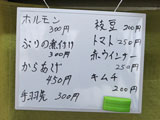 ホルモン
300円
ぶりの煮付け
300円
からあげ
450円
手羽焼 300円
枝豆 200円
トマト 250円
赤ウインナー
250円
キムチ
200円